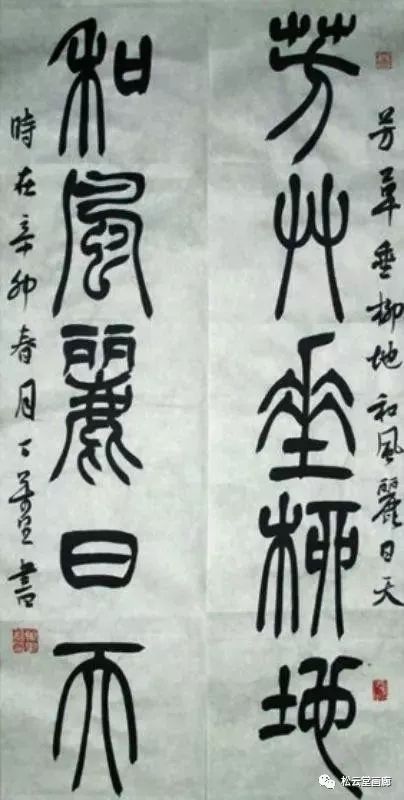 芳草垂柳地和風麗日天
芳艸垂柳地
和風麗日天
時在辛卯春月
書
松云堂画廊